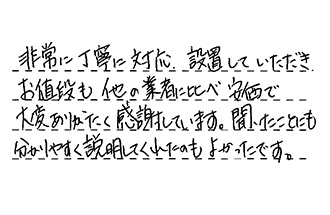 非常に丁寧に対応、設置していただき、
お値段も他の業者に比べ安価で
大変ありがたく感謝しています。聞いたことにも
分かりやすく説明してくれたのもよかったです。